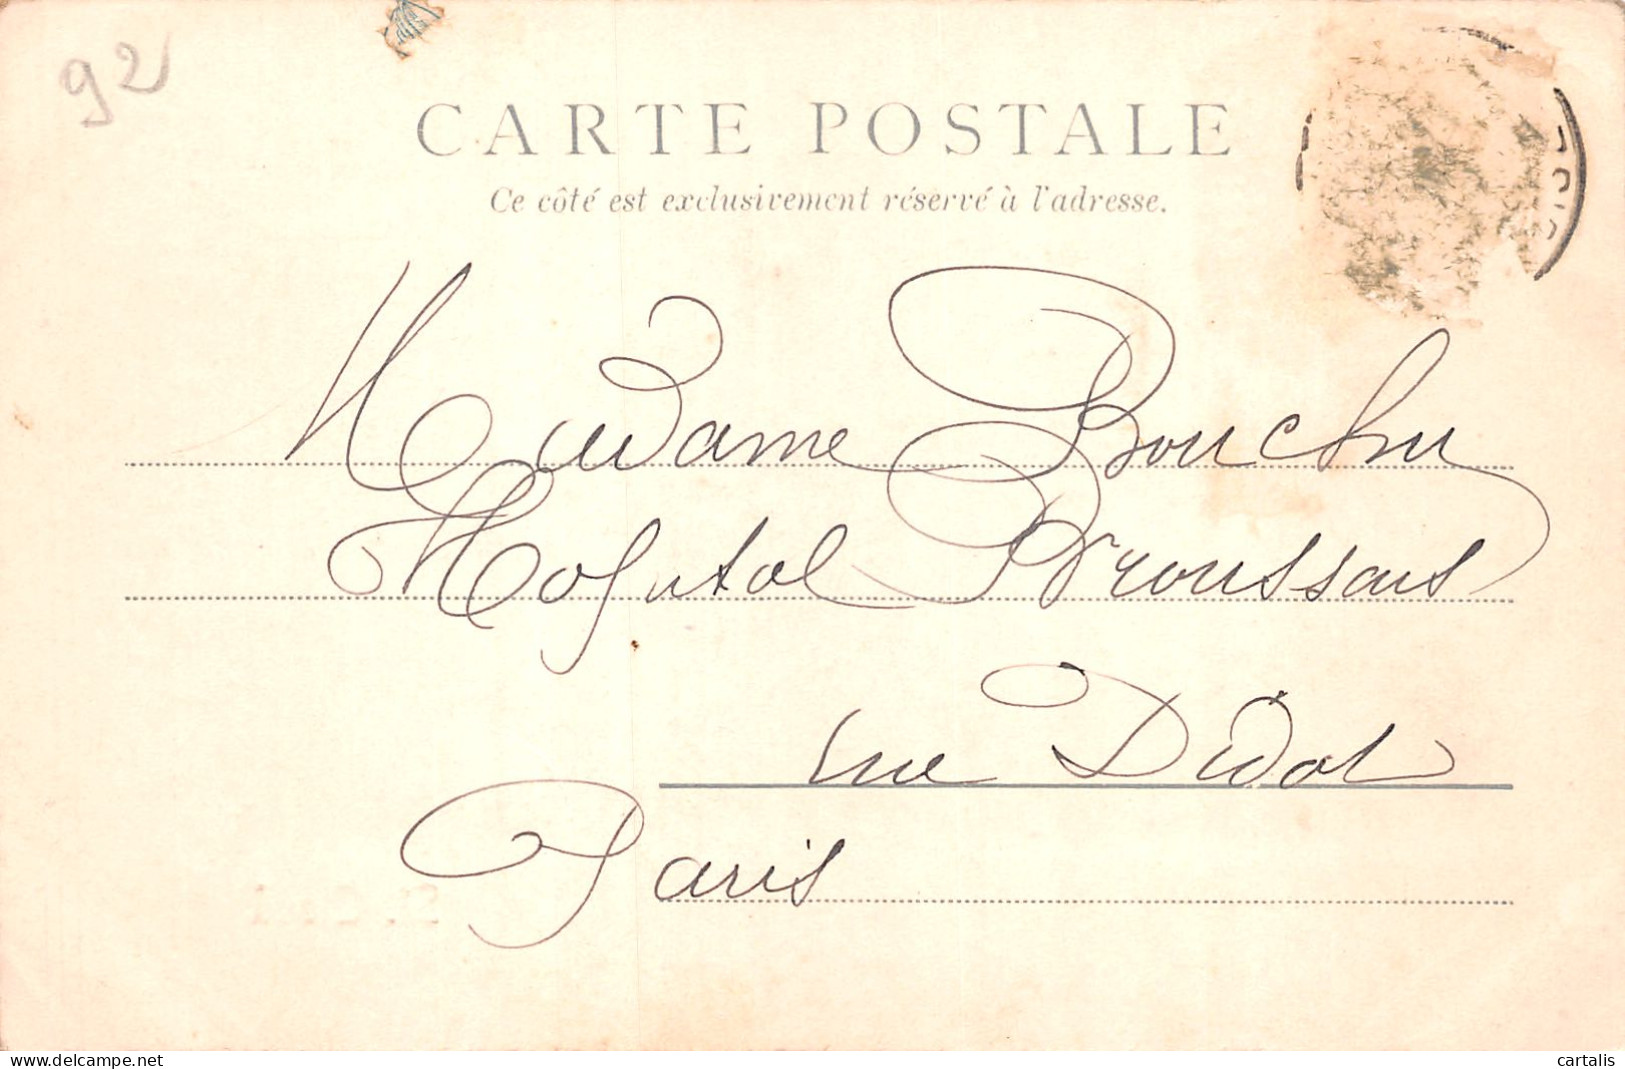 92
CARTE POSTALE
Ce côté est exclusivement réservé à l'adresse.
Madame Bouchu
Hopital Broussais
rue Didot
Paris
www.delcampe.net
cartalis